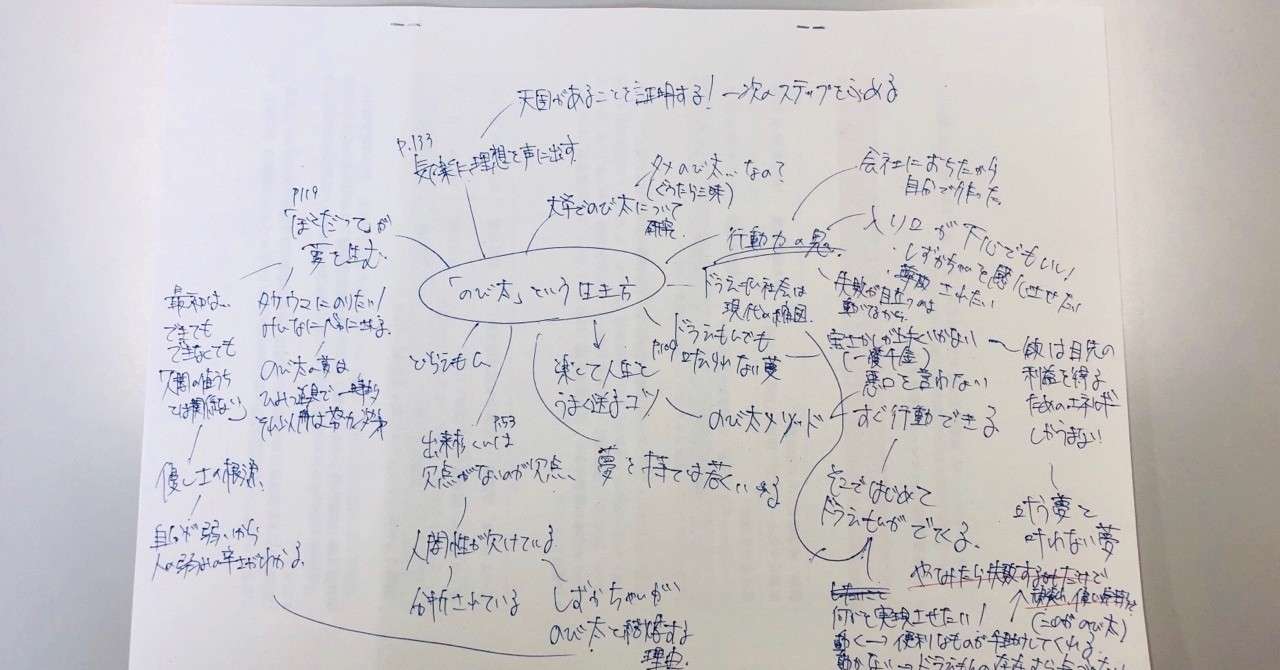 天国があることを証明する! → 次のステップをふめる
p.133
気楽に理想を声に出す
p119
「ぼくだって」が
夢を生む
最初は、
できても
できなくても
人間の値うち
には関係ない
タケウマにのりたい!
のび太の夢は
優しさの根源、
自分が弱いから
人の弱みの辛さがわかる。
大学でのび太について
研究
ダメのび太…なの?
(ぐうたら三昧)
「のび太」という生き方
どらえもん
p.53
出来杉くんは
欠点がないのが欠点、
人間性が欠けている
分析されている
しずかちゃんが
のび太と結婚する
理由
楽して人生を
うまく送るコツ
夢を持てば若くいれる
行動力の鬼
会社におちたから
自分で作った
入り口が下心でもいい!
しずかちゃんを感心させたい
ドラえもん社会は
現代の構図
失敗が目立つのは
動くから
p.100
ドラえもんでも
叶えられない夢
(一攫千金)
悪口を言わない
のび太メソッド
すぐ行動できる
そこではじめて
ドラえもんがでてくる。
欲は目先の
利益を得る
ためのエネルギー
しかうまない!
叶う夢と
叶わない夢
やってみたら失敗するだけで
(このがのび太)
何かを実現させたい!
動く→便利なものが手助けしてくれる
動かない→ドラえもんの